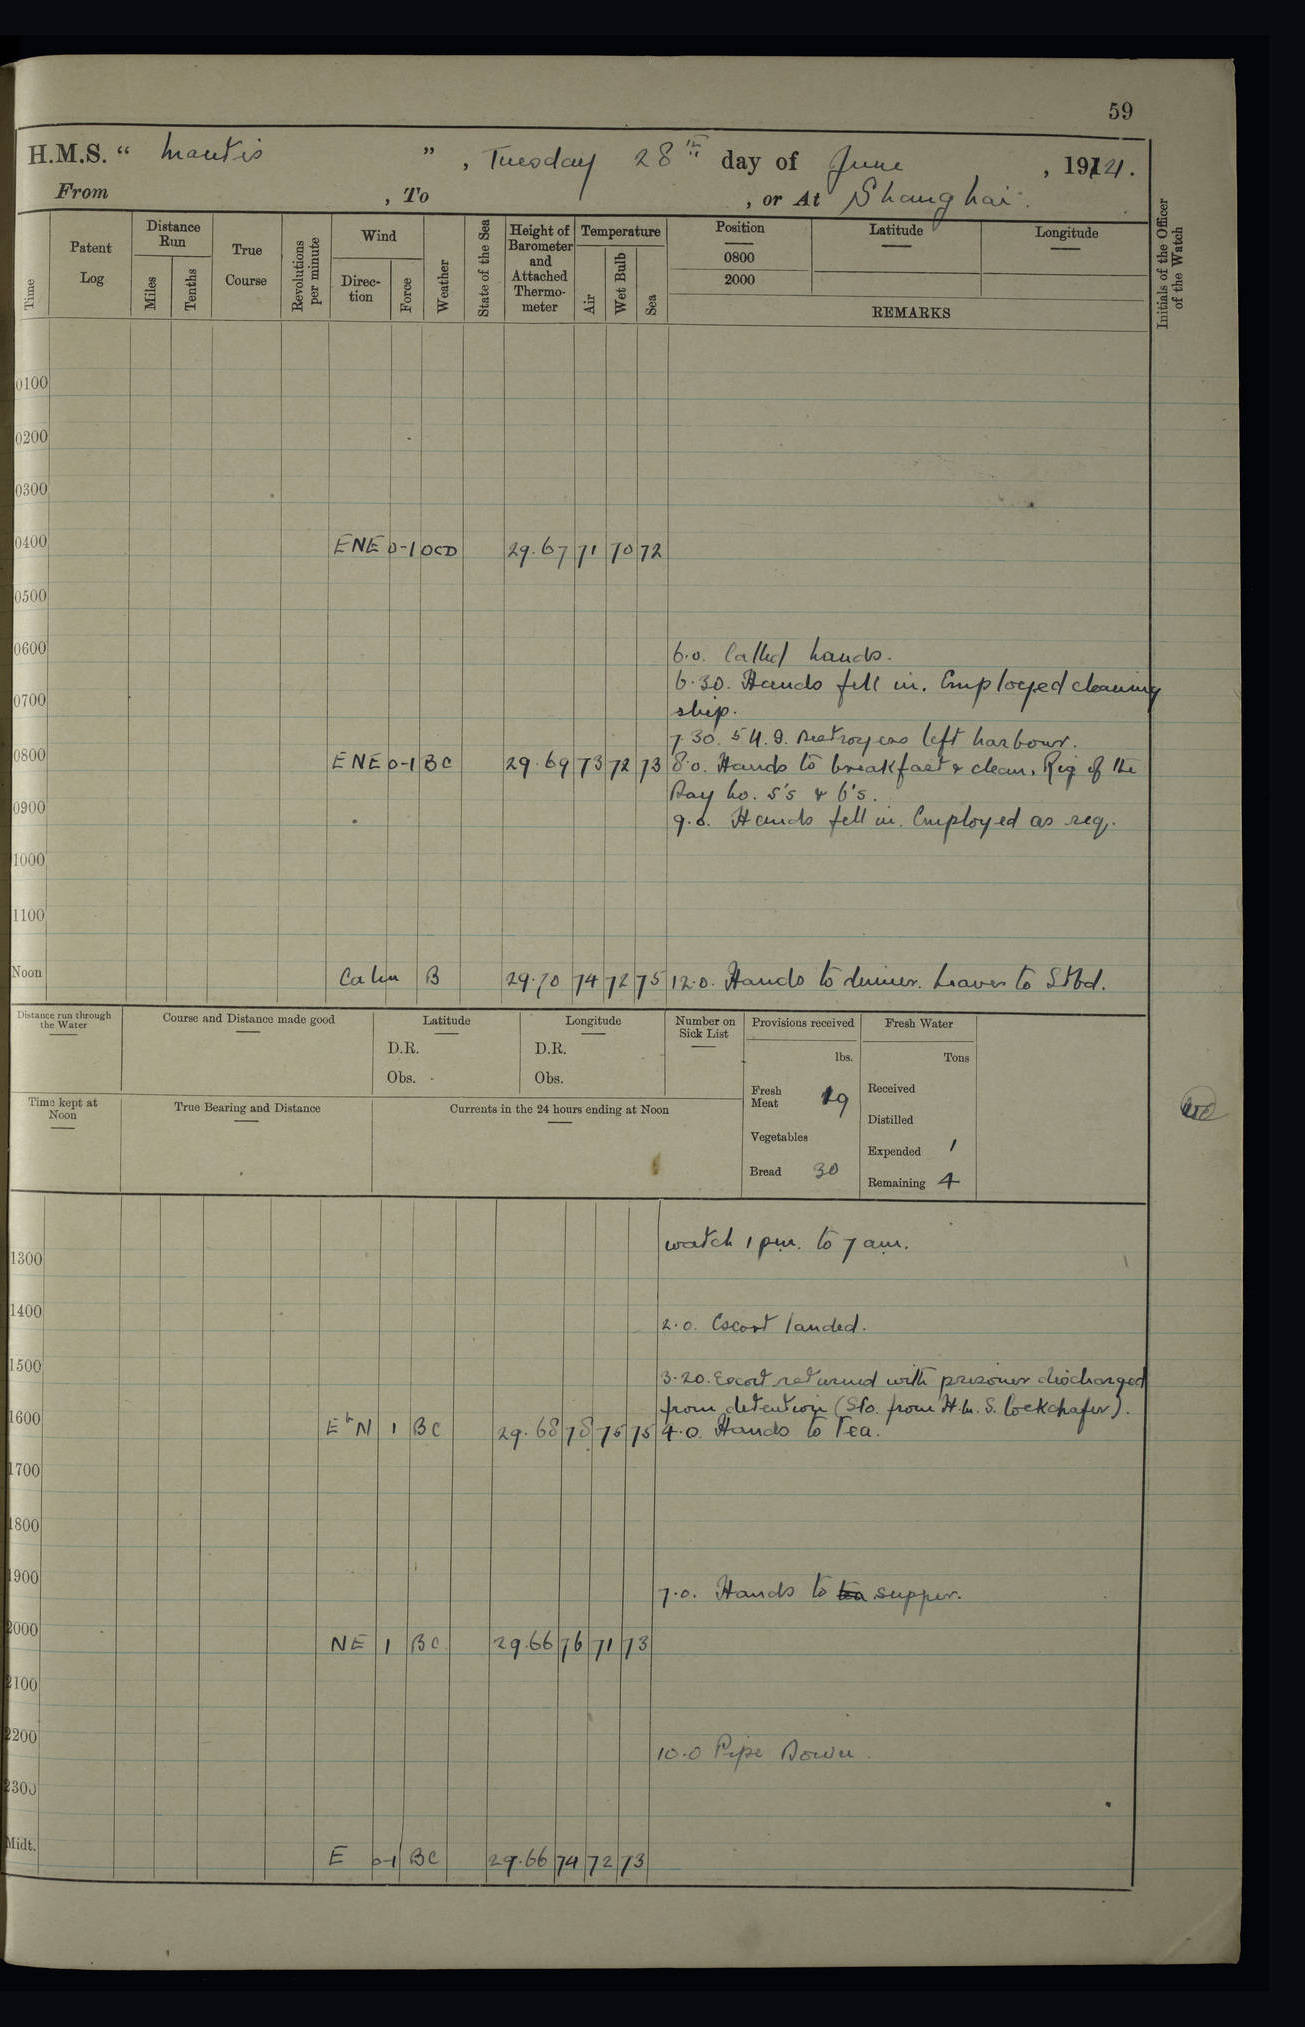 59
H.M.S. “ Mantis ” , Tuesday 28th day of June , 1921.
From , To , or At Shanghai.
Time
Patent Log
Distance Run
Miles
Tenths
True Course
Revolutions per minute
Wind
Direction
Force
Weather
State of the Sea
Height of Barometer and Attached Thermometer
Temperature
Air
Wet Bulb
Sea
Position
0800
2000
Latitude
Longitude
REMARKS
Initials of the Officer of the Watch
0100
0200
0300
0400 ENE 0-1 OCD 29.67 71 70 72
0500
0600 6.0. Called hands.
6.30. Hands fell in. Employed cleaning
0700 ship.
7.30. 5 U.S. Destroyers left harbour.
0800 ENE 0-1 BC 29.69 73 72 73 8.0. Hands to breakfast & clean. Rig of the
Day No. 5's & 6's.
0900 9.0. Hands fell in. Employed as req.
1000
1100
Noon Calm B 29.70 74 72 75 12.0. Hands to dinner. Leave to Stbd.
Distance run through the Water
Course and Distance made good
Latitude
D.R.
Obs.
Longitude
D.R.
Obs.
Number on Sick List
Provisions received
lbs.
Fresh Meat 19
Vegetables
Bread 30
Fresh Water
Tons
Received
Distilled
Expended 1
Remaining 4
Time kept at Noon
True Bearing and Distance
Currents in the 24 hours ending at Noon
watch 1 pm. to 7 am.
1300
1400 2.0. Escort landed.
1500 3.20. Escort returned with prisoner discharged
from detention (Sto. from H.M.S. Cockchafer).
1600 EbN 1 BC 29.68 78 75 75 4.0. Hands to Tea.
1700
1800
1900 7.0. Hands to tea supper.
2000 NE 1 BC 29.66 76 71 73
2100
2200 10.0 Pipe Down.
2300
Midt. E 0-1 BC 29.66 74 72 73